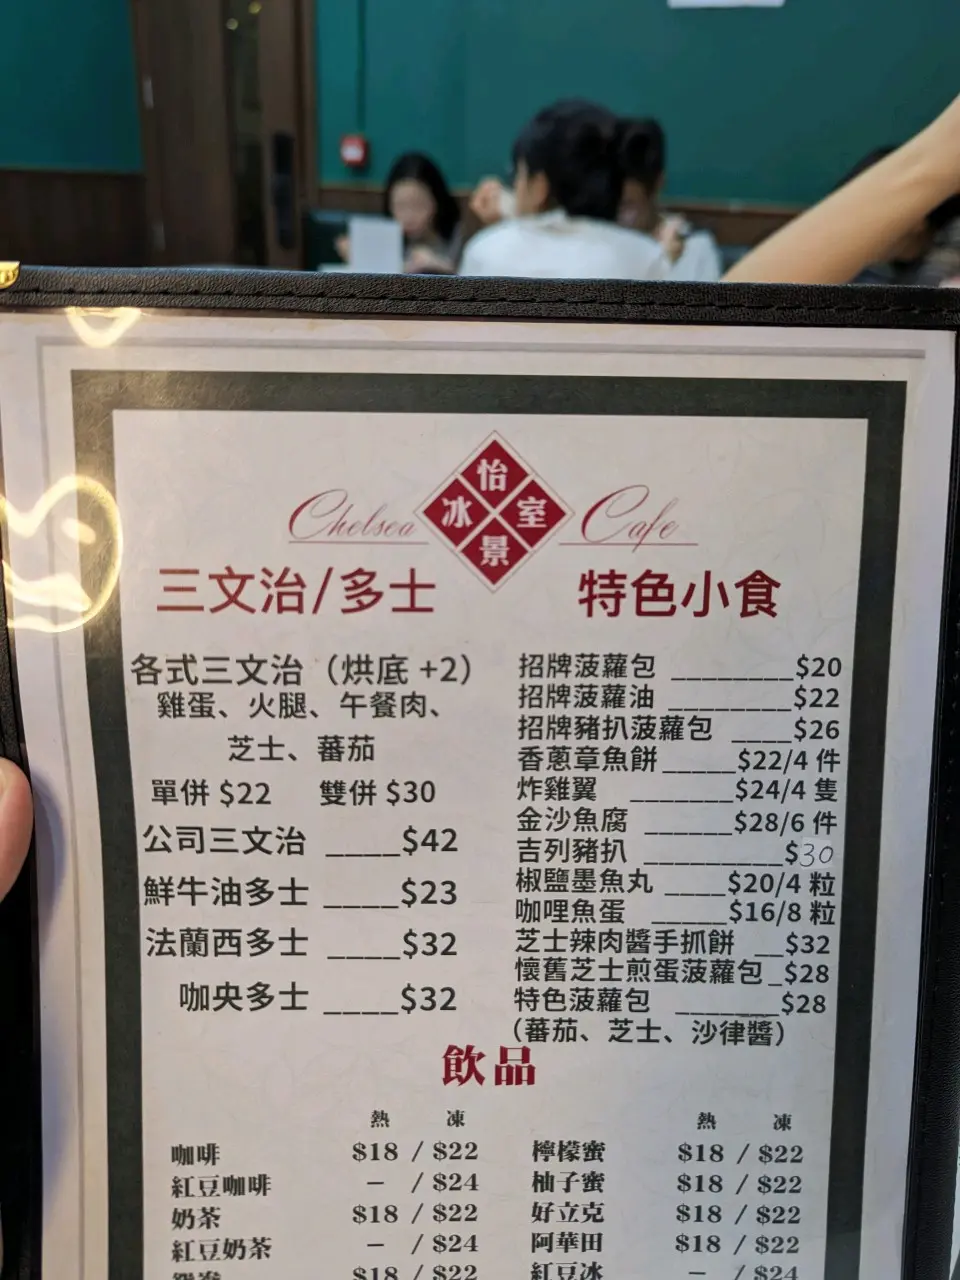 Chelsea
怡
冰室
景
Cafe
三文治/多士
各式三文治（烘底 +2）
雞蛋、火腿、午餐肉、
芝士、蕃茄
單併 $22 雙併 $30
公司三文治 ____$42
鮮牛油多士 ____$23
法蘭西多士 ____$32
咖央多士 ____$32
特色小食
招牌菠蘿包 ________$20
招牌菠蘿油 ________$22
招牌豬扒菠蘿包 ____$26
香蔥章魚餅_____$22/4 件
炸雞翼 _______$24/4 隻
金沙魚腐 ______$28/6 件
吉列豬扒 _________$30
椒鹽墨魚丸 ____$20/4 粒
咖哩魚蛋 _____$16/8 粒
芝士辣肉醬手抓餅 __$32
懷舊芝士煎蛋菠蘿包_$28
特色菠蘿包 _______$28
（蕃茄、芝士、沙律醬）
飲品
熱 凍
咖啡 $18 / $22
紅豆咖啡 – / $24
奶茶 $18 / $22
紅豆奶茶 – / $24
$18 / $22
熱 凍
檸檬蜜 $18 / $22
柚子蜜 $18 / $22
好立克 $18 / $22
阿華田 $18 / $22
紅豆冰 – / $24